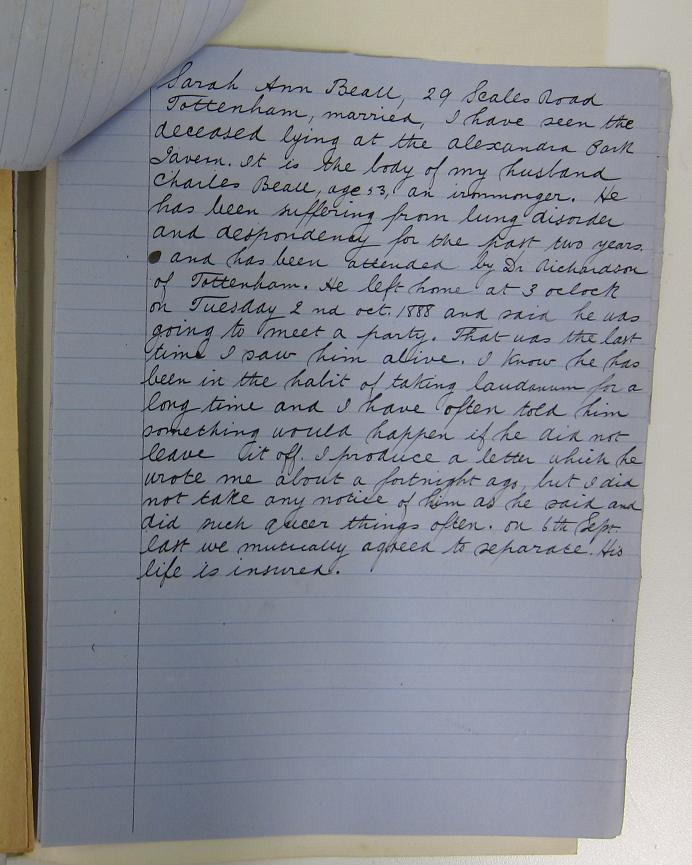 Sarah Ann Beall, 29 Scales Road
Tottenham, married, I have seen the
deceased lying at the alexandra Park
Tavern. It is the body of my husband
Charles Beall, age 53, an ironmonger. He
has been suffering from lung disorder
and despondency for the past two years.
and has been attended by Dr Richardson
of Tottenham. He left home at 3 oclock
on Tuesday 2nd oct. 1888 and said he was
going to meet a party. That was the last
time I saw him alive. I know he has
been in the habit of taking laudanum for a
long time and I have often told him
something would happen if he did not
leave it off. I produce a letter which he
wrote me about a fortnight ago, but I did
not take any notice of him as he said and
did such queer things often. on 6th Sept.
last we mutually agreed to separate. His
life is insured.